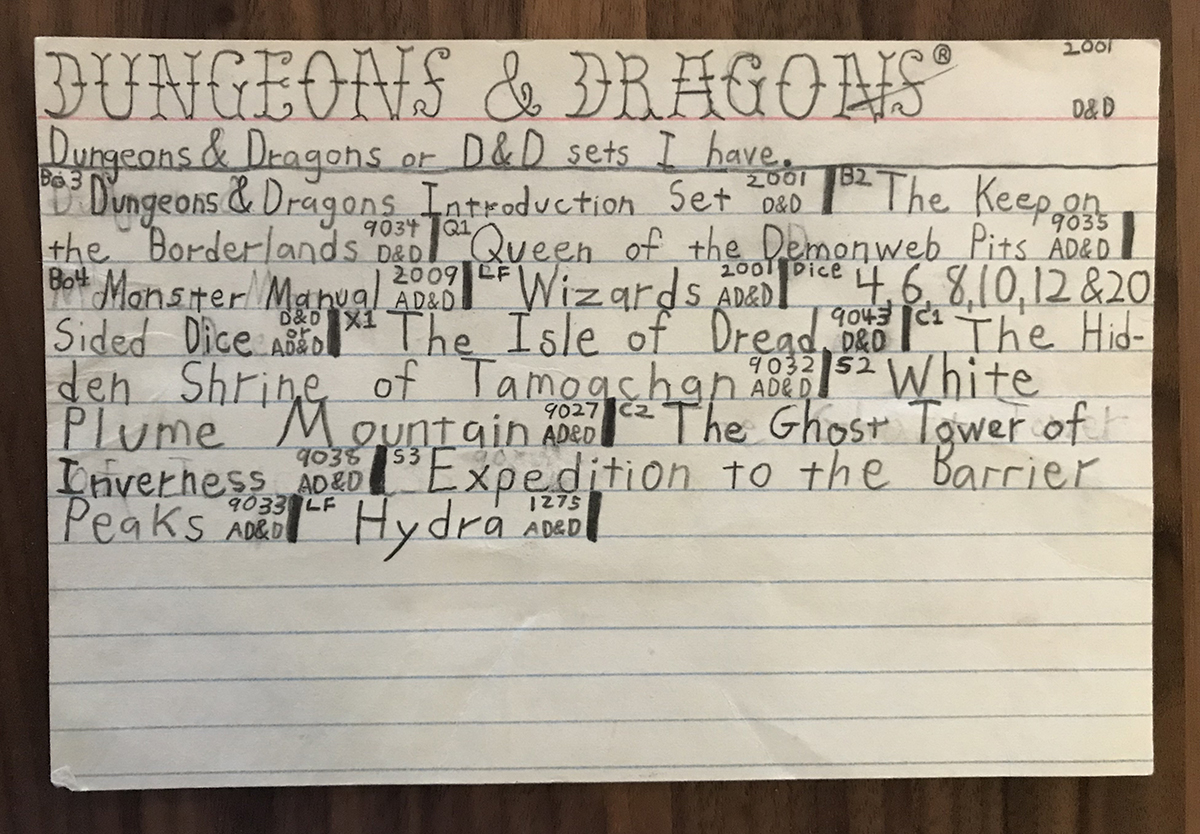 DUNGEONS & DRAGONS® 2001 D&D
Dungeons & Dragons or D&D sets I have.
Bo3 Dungeons & Dragons Introduction Set 2001 D&D B2 The Keep on
the Borderlands 9034 D&D Q1 Queen of the Demonweb Pits 9035 AD&D
Bo4 Monster Manual 2009 AD&D LF Wizards 2001 AD&D Dice 4, 6, 8, 10, 12 & 20
Sided Dice D&D or AD&D X1 The Isle of Dread 9043 D&D C1 The Hid-
den Shrine of Tamoachan 9032 AD&D S2 White
Plume Mountain 9027 AD&D C2 The Ghost Tower of
Inverness 9038 AD&D S3 Expedition to the Barrier
Peaks 9033 AD&D LF Hydra 1275 AD&D